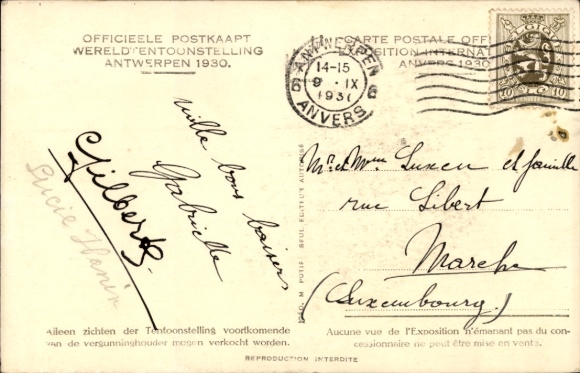 OFFICIEELE POSTKAAPT
WERELDTENTOONSTELLING
ANTWERPEN 1930.
CARTE POSTALE OFF
EXPOSITION INTERNAT
ANVERS 1930
ANTWERPEN
6 6
14-15
9 · IX
193
ANVERS
10 10
mille bons baisers
Gabrielle
Gilberts.
Lucie Hanin
Mr. et Mme Luxen et famille
rue Libert
Marche
(Luxembourg.)
SEUL EDITEUR AUTORISÉ
Alleen zichten der Tentoonstelling voortkomende
van de vergunninghouder mogen verkocht worden.
Aucune vue de l'Exposition n'émanant pas du con-
cessionnaire ne peut être mise en vente.
REPRODUCTION INTERDITE